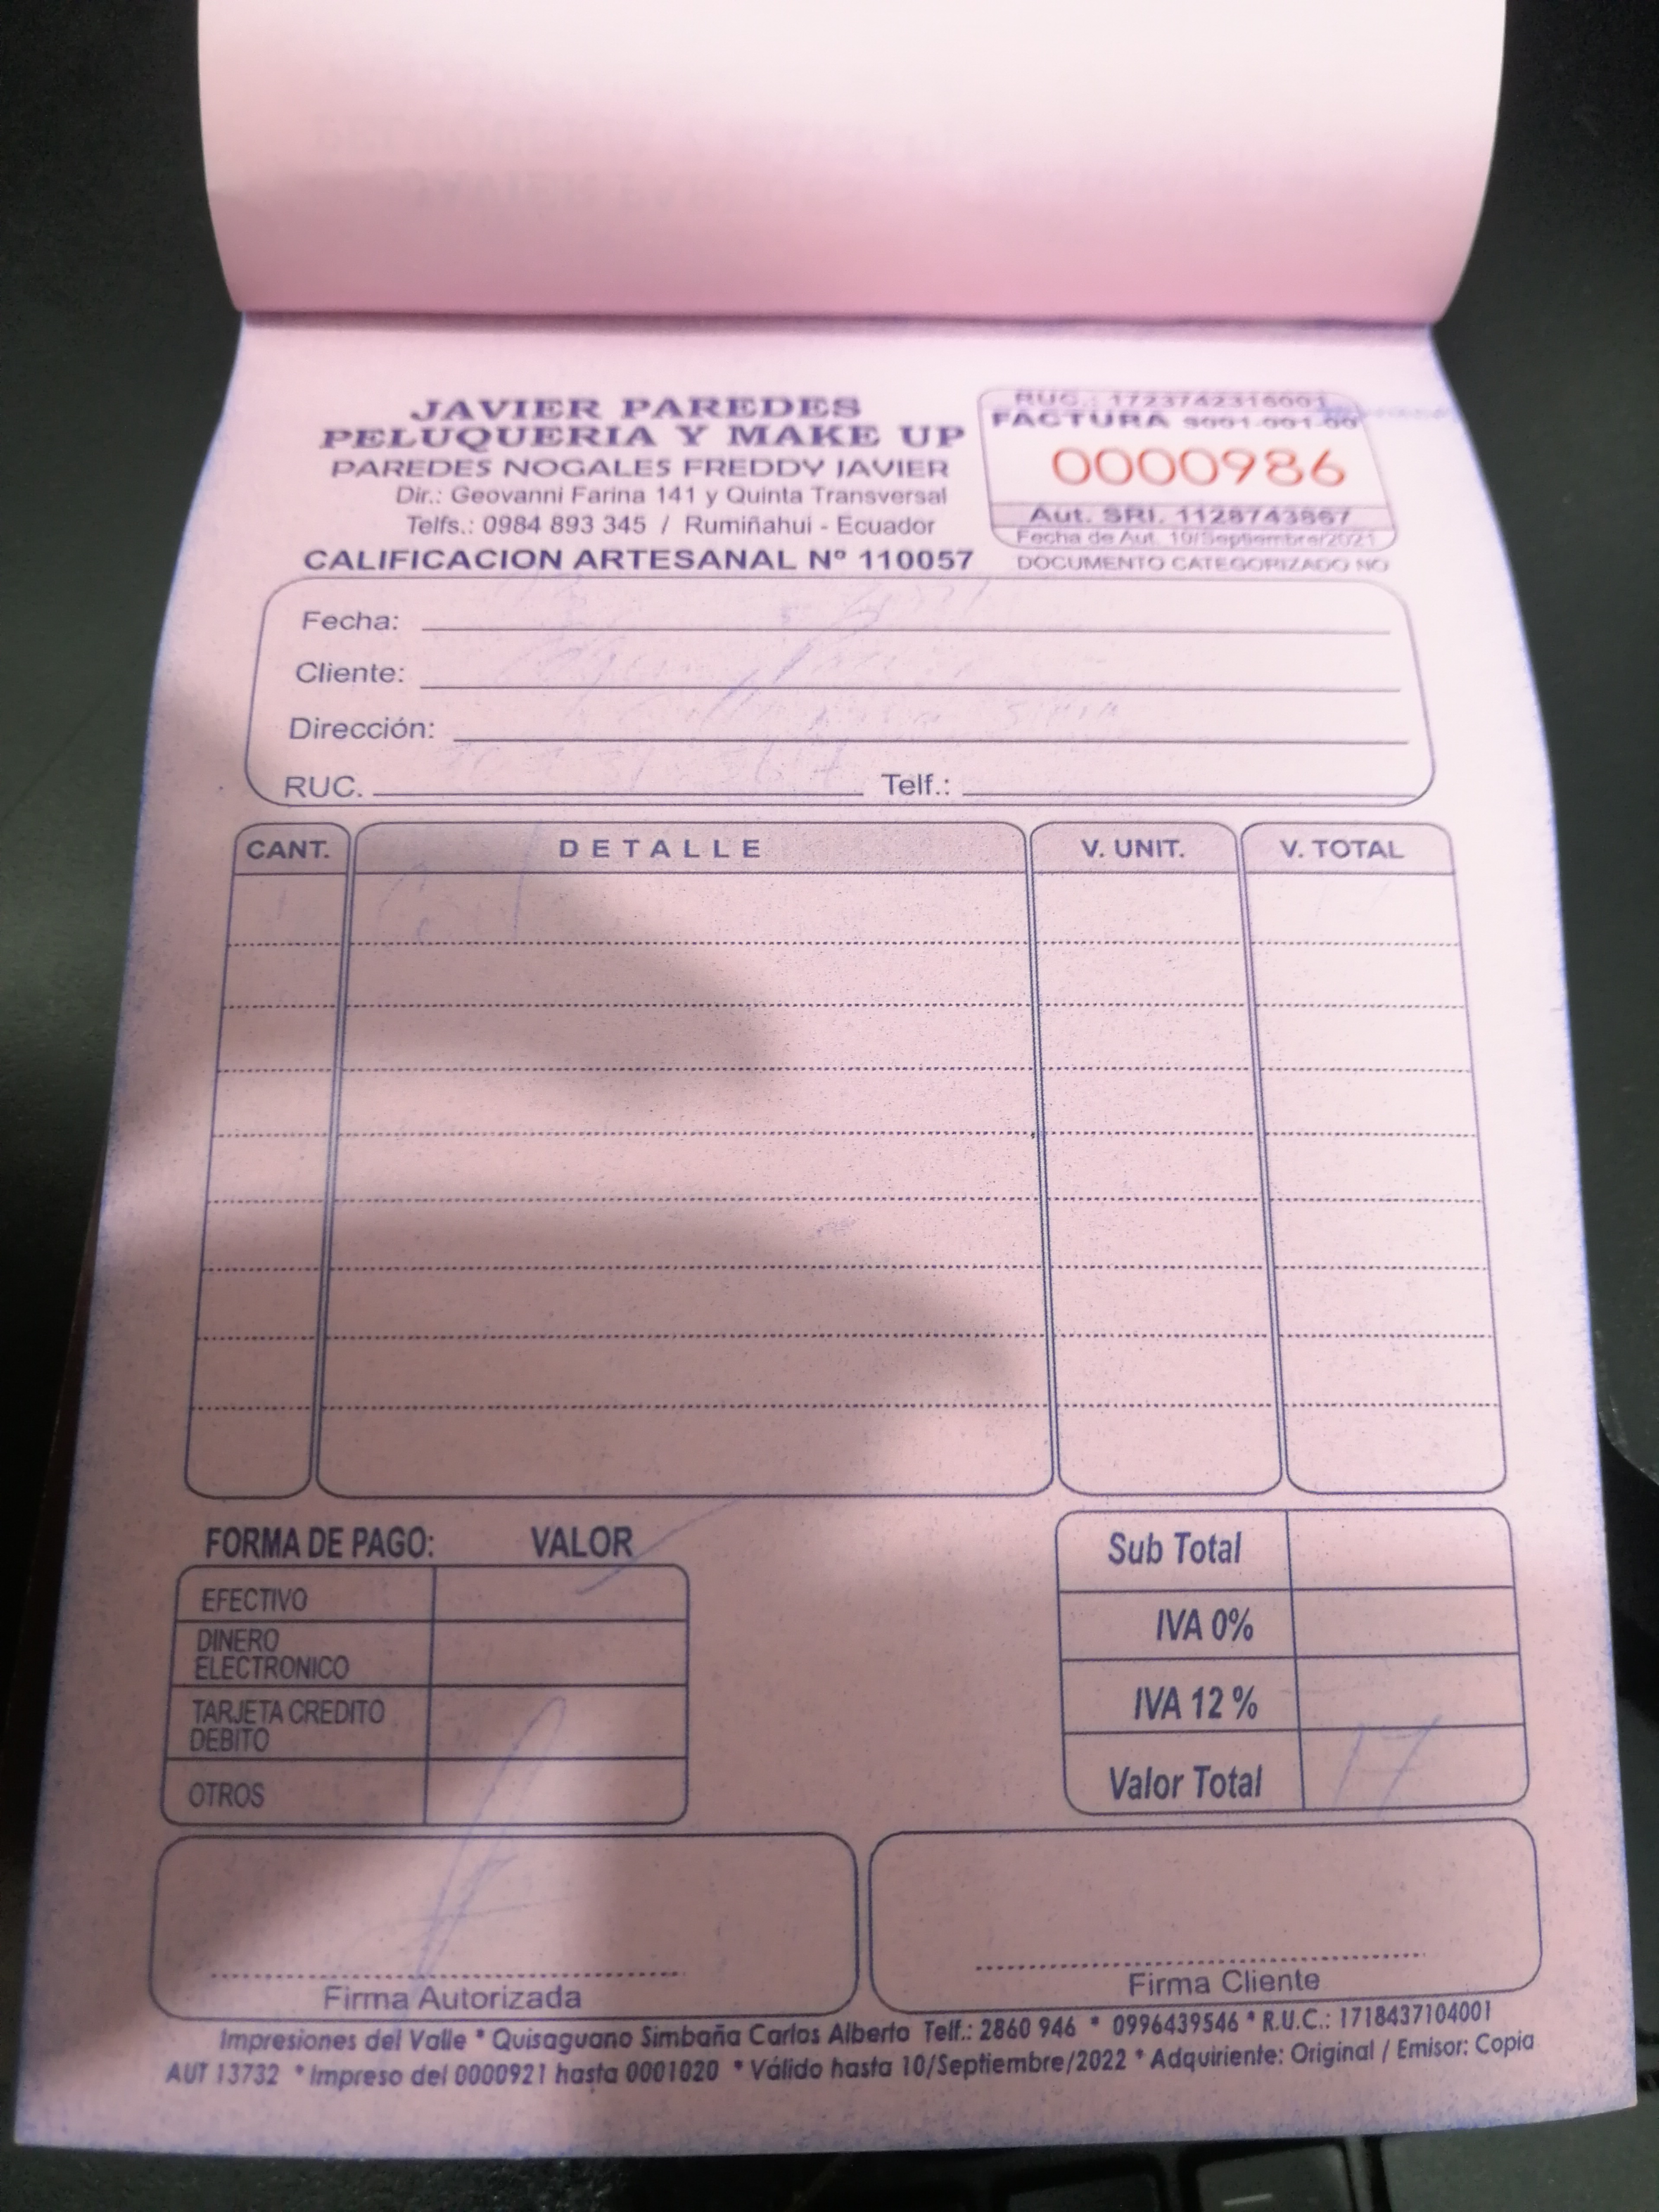 JAVIER PAREDES
PELUQUERIA Y MAKE UP
PAREDES NOGALES FREDDY JAVIER
Dir.: Geovanni Farina 141 y Quinta Transversal
Telfs.: 0984 893 345 / Rumiñahui - Ecuador
CALIFICACION ARTESANAL Nº 110057
RUC.: 1723742316001
FACTURA S001-001-00
0000986
Aut. SRI. 1128743867
Fecha de Aut. 10/Septiembre/2021
DOCUMENTO CATEGORIZADO NO
Fecha:
Cliente:
Dirección:
RUC. Telf.:
CANT. DETALLE V. UNIT. V. TOTAL
FORMA DE PAGO: VALOR
EFECTIVO
DINERO
ELECTRONICO
TARJETA CREDITO
DEBITO
OTROS
Sub Total
IVA 0%
IVA 12 %
Valor Total 17
Firma Autorizada
Firma Cliente
Impresiones del Valle * Quisaguano Simbaña Carlos Alberto Telf.: 2860 946 * 0996439546 * R.U.C.: 1718437104001
AUT 13732 * Impreso del 0000921 hasta 0001020 * Válido hasta 10/Septiembre/2022 * Adquiriente: Original / Emisor: Copia